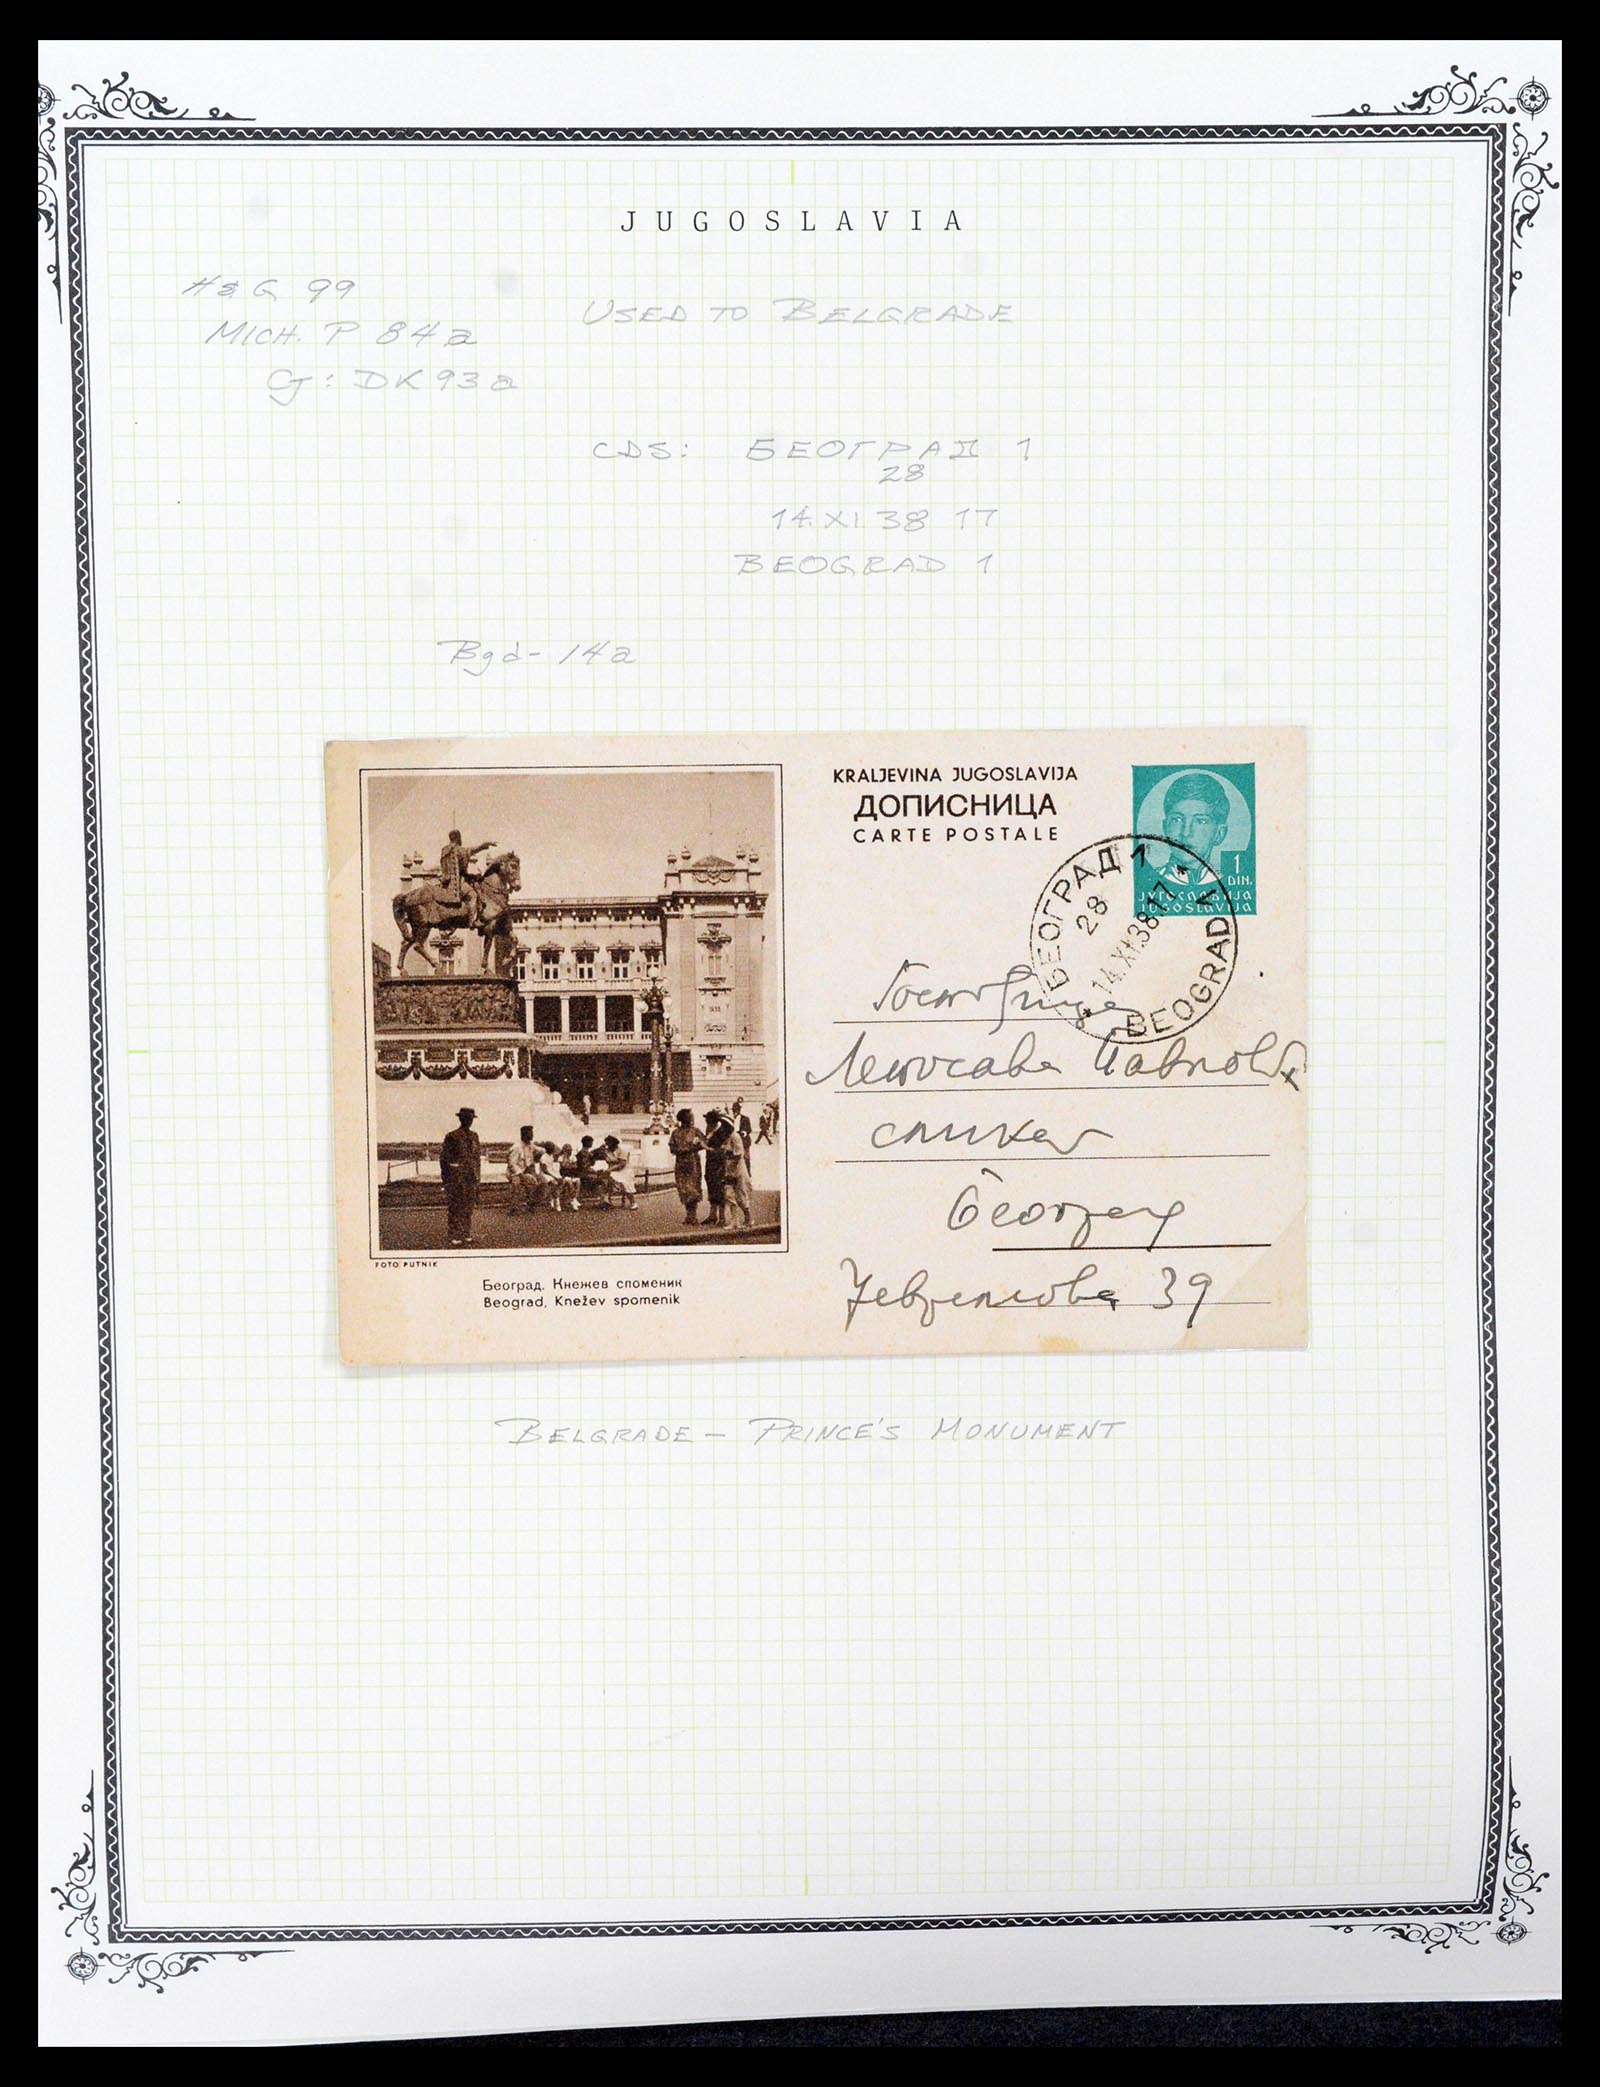 JUGOSLAVIA
H & G 99
MICH. P 84a
USED TO BELGRADE
CJ: DK 93a
CDS: БЕОГРАД 1
28
14. XI 38 17
BEOGRAD 1
Bgd - 14a
KRALJEVINA JUGOSLAVIJA
ДОПИСНИЦА
CARTE POSTALE
1
DIN.
ЈУГОСЛАВИЈА
JUGOSLAVIJA
БЕОГРАД 1
28
14.XI.38 17
BEOGRAD 1
Београд
39
FOTO PUTNIK
Београд, Кнежев споменик
Beograd, Knežev spomenik
BELGRADE – PRINCE'S MONUMENT